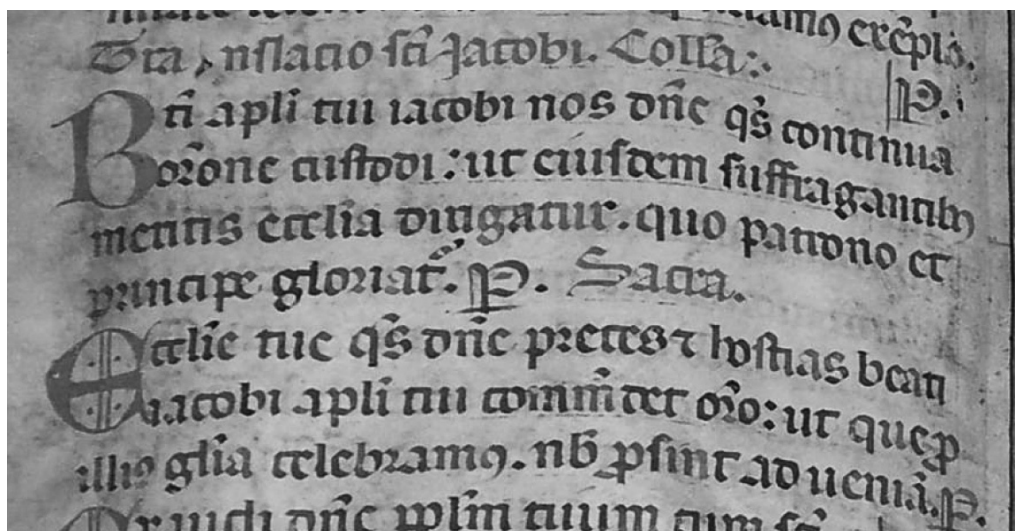 exẽplo.
Translacio sc̃i Jacobi. Coll̃a. P.
Bti apl̃i tui iacobi nos dñe qs̃ continua
or̃one custodi: ut eiusdem suffragantib9
meritis eccl̃ia dirigatur. quo patrono et
principe gloriat᷑. P. Sacra.
Eccl̃ie tue qs̃ dñe preces ⁊ hostias beati
iacobi apl̃i tui com̃m̃det or̃o: ut que ꝓ
illi9 gl̃ia celebram9. nb̃ ꝓsint ad ueniã. P.
dñe ppl̃m tuum cum sc̃i